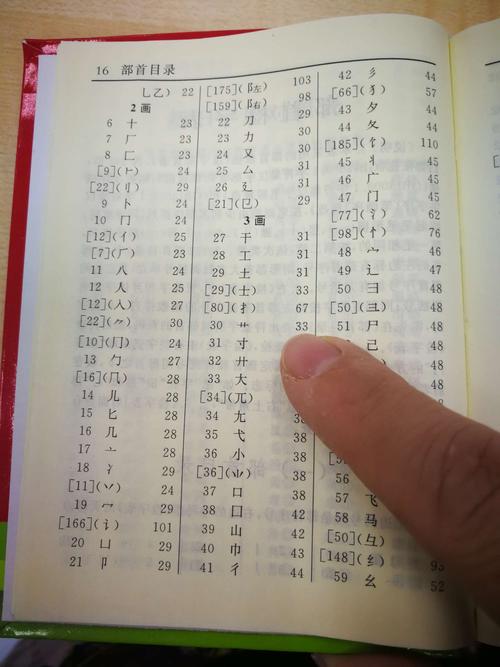 16 部首目录
乚乙) 22
2画
6 十 23
7 厂 23
8 匚 23
[9](⺊) 24
[22](刂) 29
9 卜 24
10 冂 24
[12](亻) 25
[7](𠂆) 23
11 八 24
12 人 25
[12](入) 27
[22](⺈) 30
[10](⺆) 24
13 勹 27
[16](⺇) 28
14 儿 28
15 匕 28
16 几 28
17 亠 28
18 冫 29
[11](丷) 24
19 冖 29
[166](讠) 101
20 凵 29
21 卩 29
[175](阝左) 103
[159](阝右) 98
22 刀 29
23 力 30
24 又 30
25 厶 30
26 廴 30
[21](㔾) 29
3画
27 干 31
28 工 31
29 土 31
[29](士) 33
[80](扌) 67
30 艹 33
31 寸
32 廾
33 大
[34](兀)
34 尢 38
35 弋 38
36 小 38
[36](⺌) 38
37 口 38
38 囗 42
39 山 42
40 巾 43
41 彳 44
42 彡 44
[66](犭) 57
43 夕 44
44 夂 44
[185](饣) 110
45 丬 45
46 广 45
47 门 45
[77](氵) 62
[98](忄) 76
48 宀 46
49 辶 47
50 彐 48
[50](彐) 48
51 尸 48
己 48
48
56
57 飞
58 马
[50](彑)
[148](纟) 93
59 幺 52